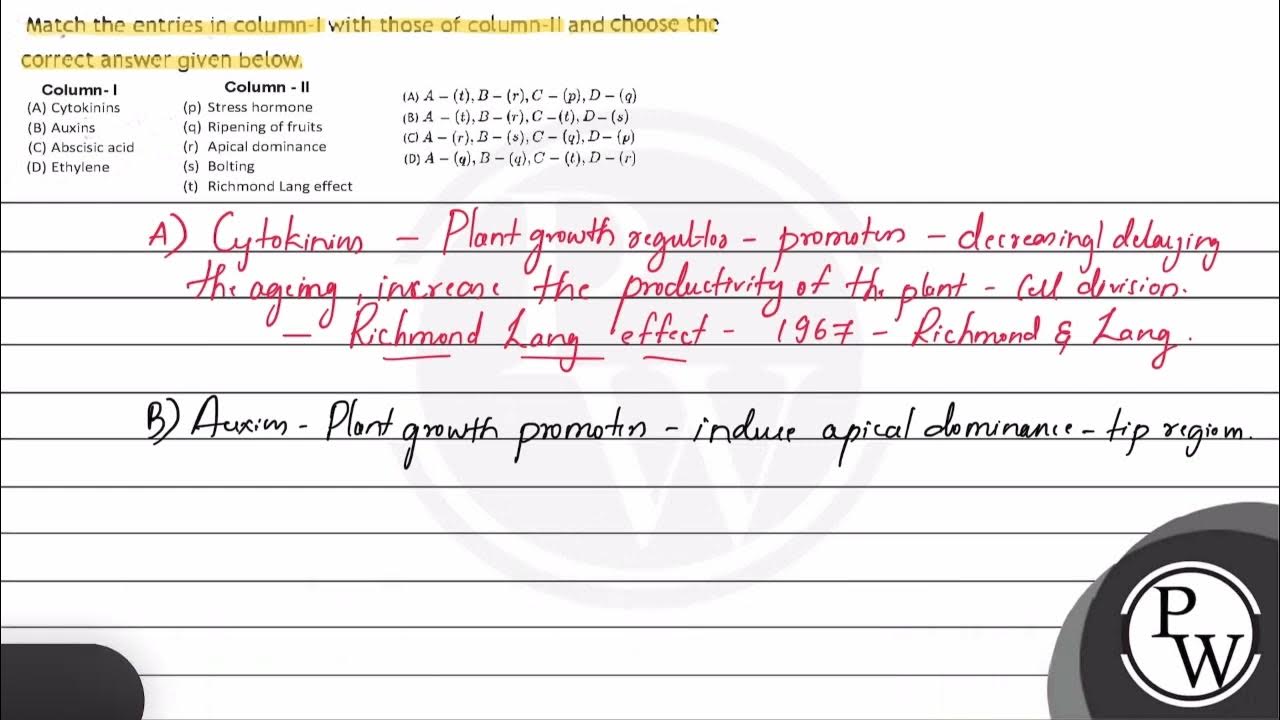 Match the entries in column-I with those of column-II and choose the
correct answer given below.
Column- I
(A) Cytokinins
(B) Auxins
(C) Abscisic acid
(D) Ethylene
Column - II
(p) Stress hormone
(q) Ripening of fruits
(r) Apical dominance
(s) Bolting
(t) Richmond Lang effect
(A) A − (t), B − (r), C − (p), D − (q)
(B) A − (t), B − (r), C −(t), D − (s)
(C) A − (r), B − (s), C − (q), D − (p)
(D) A − (q), B − (q), C − (t), D − (r)
A) Cytokinins – Plant growth – promoters – decreasing/ delaying
the ageing, increase the productivity of the plant – Cell division.
– Richmond Lang effect – 1967 – Richmond & Lang.
B) Auxins – Plant growth promoters – induce apical dominance – tip region.
PW
PW